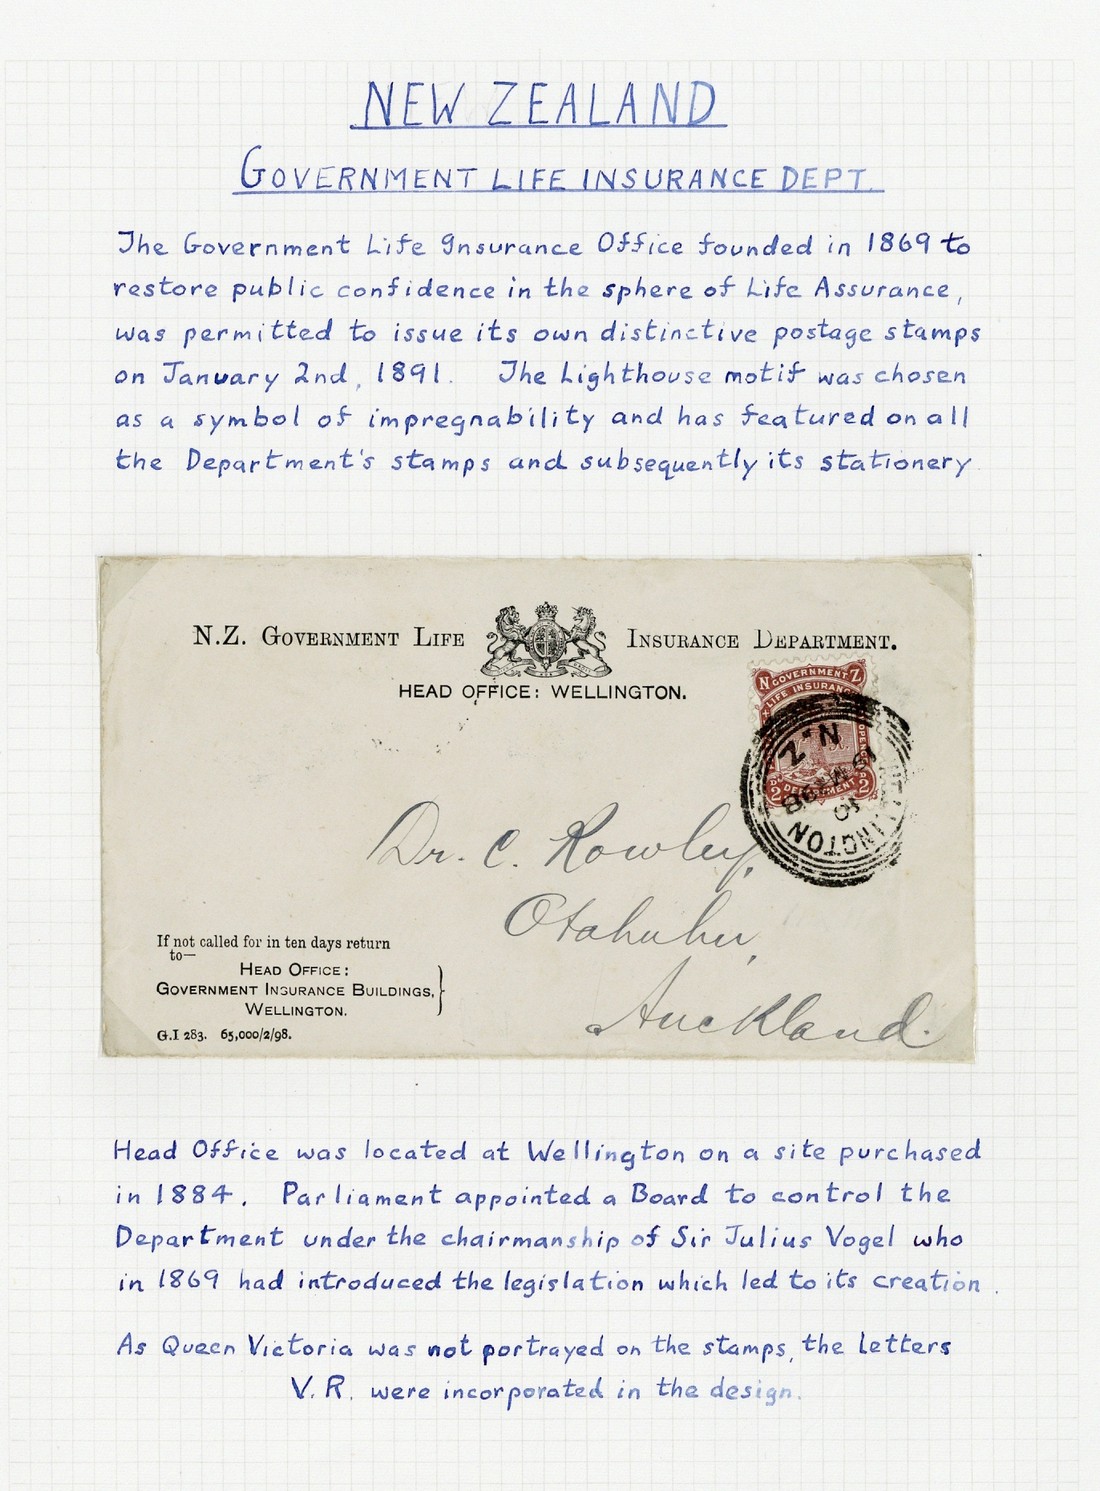 NEW ZEALAND
GOVERNMENT LIFE INSURANCE DEPT.
The Government Life Insurance Office founded in 1869 to
restore public confidence in the sphere of Life Assurance,
was permitted to issue its own distinctive postage stamps
on January 2nd, 1891. The Lighthouse motif was chosen
as a symbol of impregnability and has featured on all
the Department's stamps and subsequently its stationery.
N.Z. GOVERNMENT LIFE INSURANCE DEPARTMENT.
HEAD OFFICE: WELLINGTON.
N GOVERNMENT Z
LIFE INSURANCE
V.R.
2D DEPARTMENT 2D
N.Z
WELLINGTON
Dr. C. Rowley,
Otahuhu,
Auckland.
If not called for in ten days return
to—
HEAD OFFICE:
GOVERNMENT INSURANCE BUILDINGS,
WELLINGTON.
G.I 283. 65,000/2/98.
Head Office was located at Wellington on a site purchased
in 1884. Parliament appointed a Board to control the
Department under the chairmanship of Sir Julius Vogel who
in 1869 had introduced the legislation which led to its creation.
As Queen Victoria was not portrayed on the stamps, the letters
V.R. were incorporated in the design.